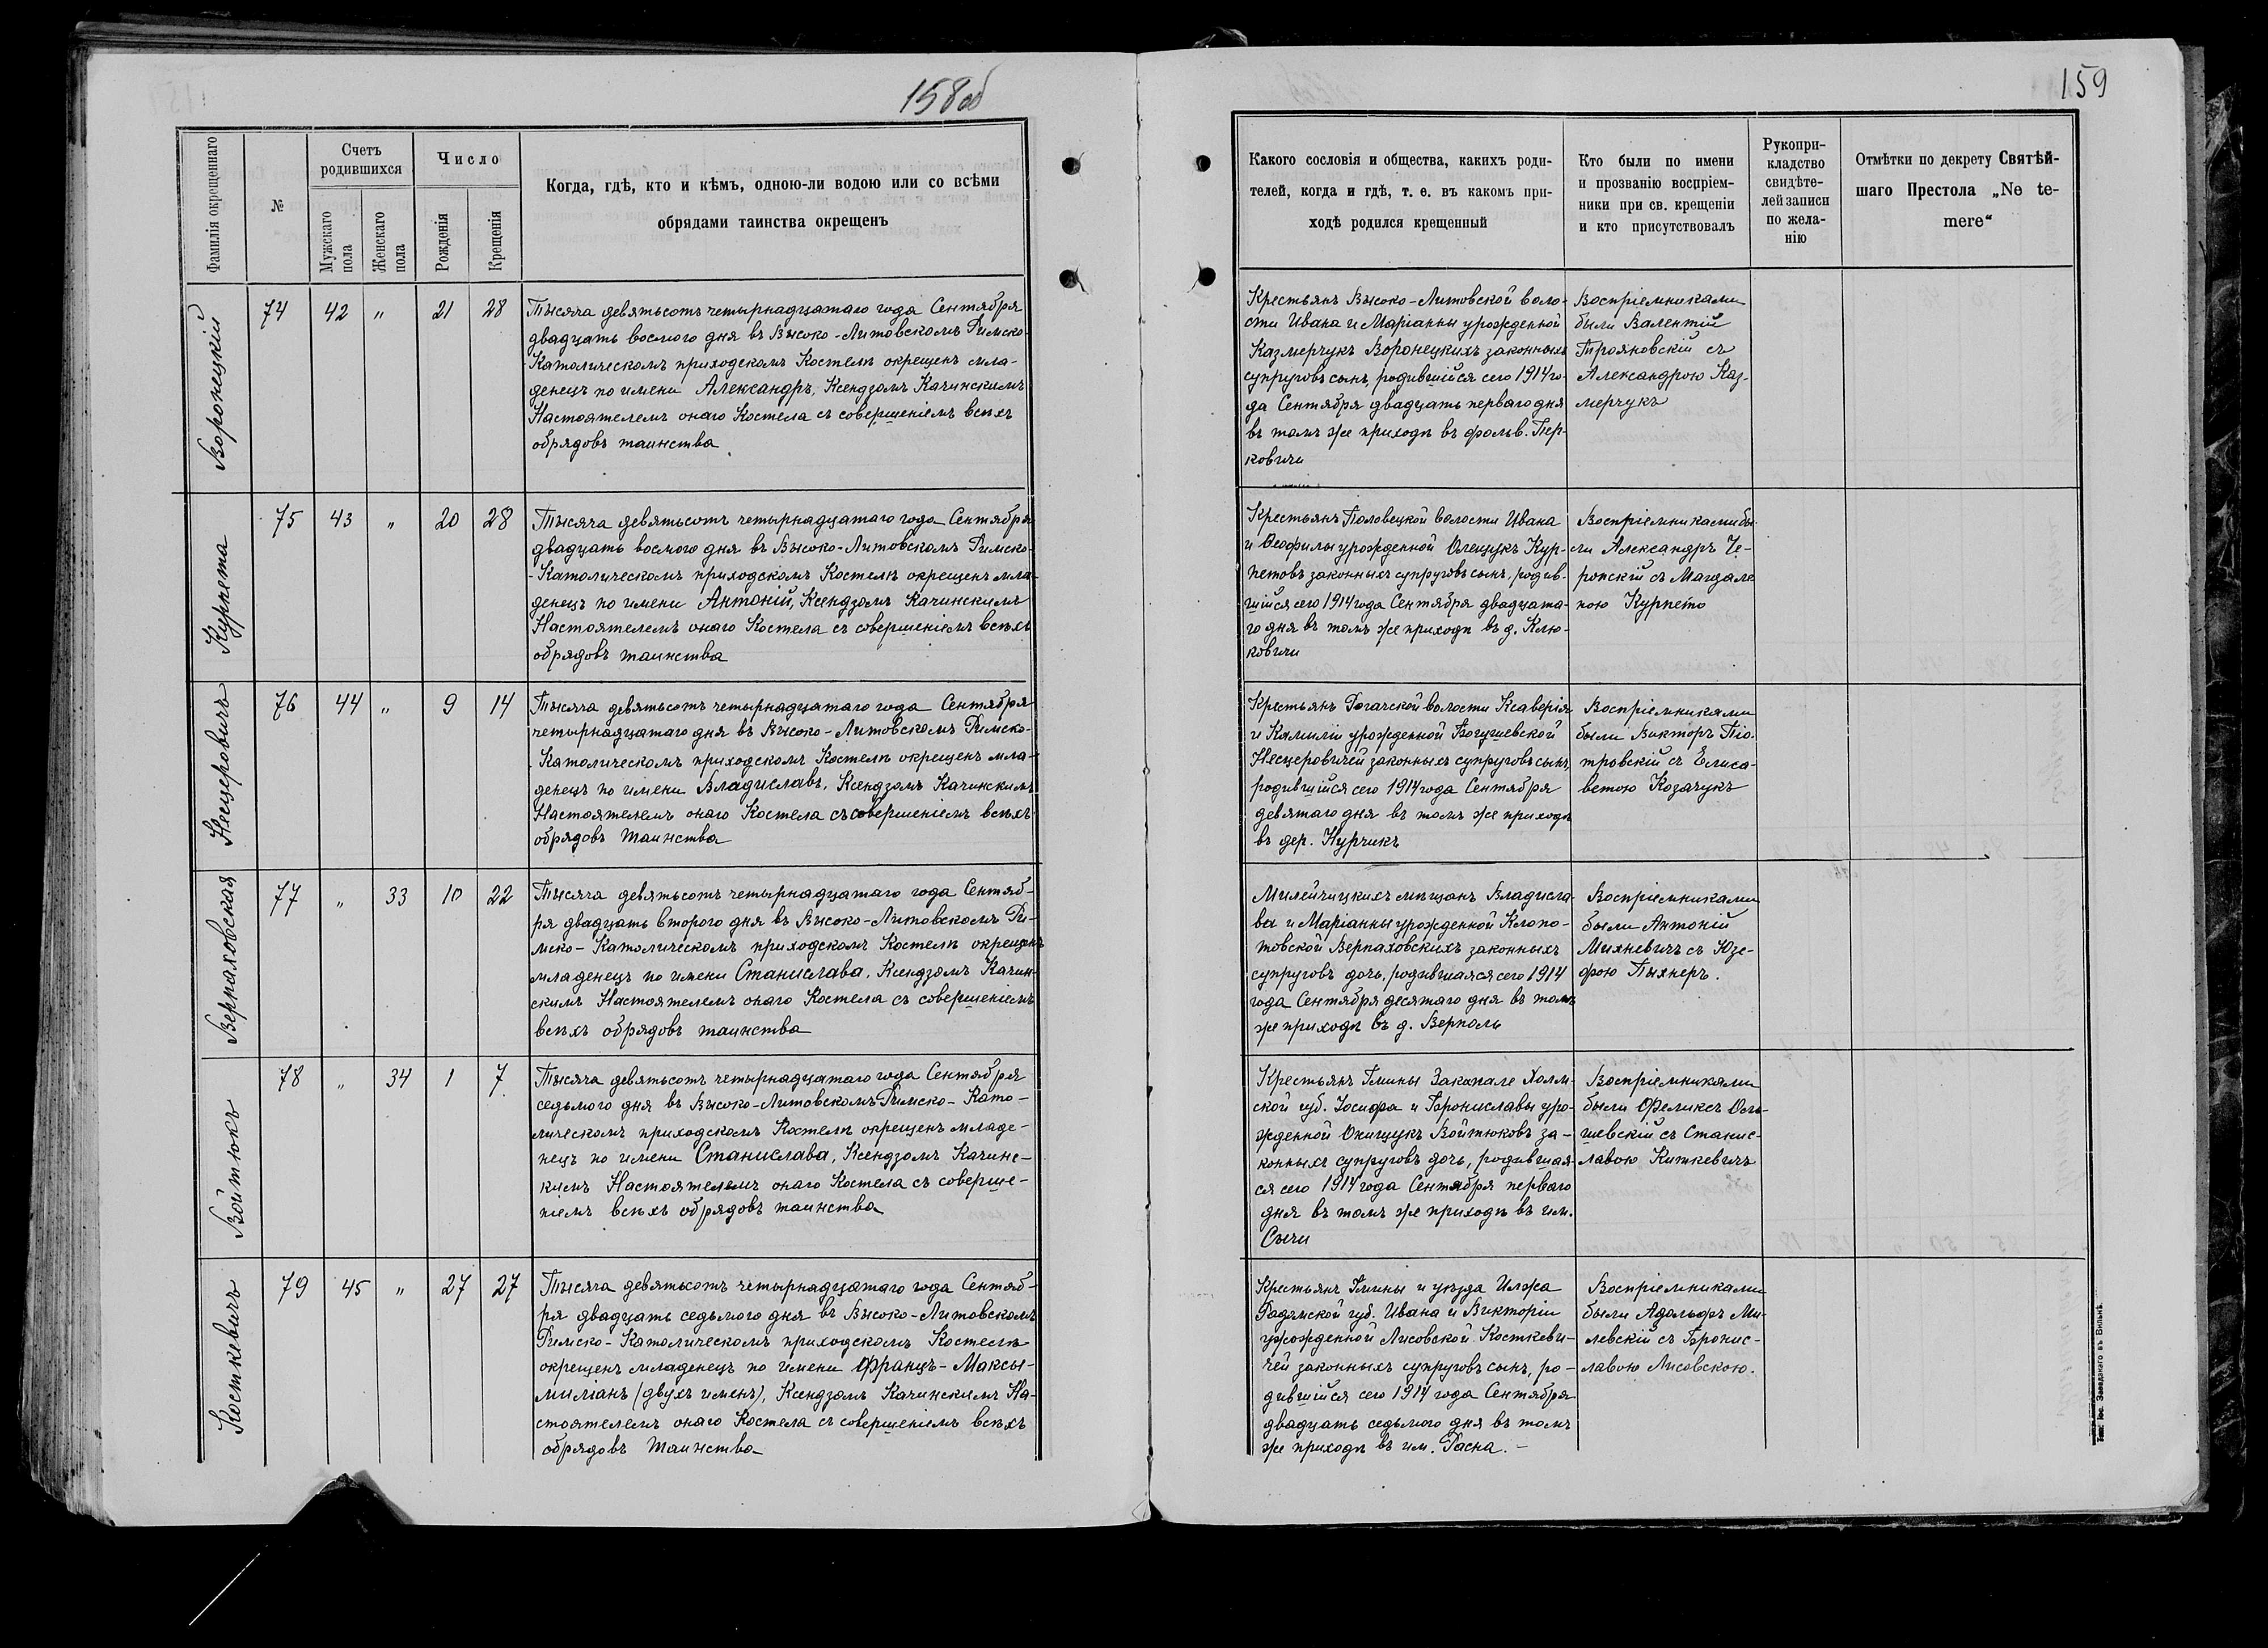 158об
Фамилія окрещеннаго
№
Счетъ
родившихся
Мужскаго
пола
Женскаго
пола
Число
Рожденія
Крещенія
Когда, гдѣ, кто и кѣмъ, одною-ли водою или со всѣми
обрядами таинства окрещенъ
Воронецкій
74 42 " 21 28
Тысяча девятьсотъ четырнадцатаго года Сентября
двадцать восмого дня въ Высоко-Литовскомъ Римско-
Католическомъ приходскомъ Костелѣ окрещенъ мла-
денецъ по имени Александръ, Ксендзомъ Качинскимъ
Настоятелемъ онаго Костела съ совершеніемъ всѣхъ
обрядовъ таинства
Курпята
75 43 " 20 28
Тысяча девятьсотъ четырнадцатаго года Сентября
двадцать восмого дня въ Высоко-Литовскомъ Римско-
-Католическомъ приходскомъ Костелѣ окрещенъ мла-
денецъ по имени Антоній, Ксендзомъ Качинскимъ
Настоятелемъ онаго Костела съ совершеніемъ всѣхъ
обрядовъ таинства
Несцеровичъ
76 44 " 9 14
Тысяча девятьсотъ четырнадцатаго года Сентября
четырнадцатаго дня въ Высоко-Литовскомъ Римско-
Католическомъ приходскомъ Костелѣ окрещенъ мла-
денецъ по имени Владиславъ, Ксендзомъ Качинскимъ
Настоятелемъ онаго Костела съ совершеніемъ всѣхъ
обрядовъ Таинства
Верпаховская
77 " 33 10 22
Тысяча девятьсотъ четырнадцатаго года Сентяб-
ря двадцать второго дня въ Высоко-Литовскомъ Ри-
мско-Католическомъ приходскомъ Костелѣ окрещенъ
младенецъ по имени Станислава, Ксендзомъ Качин-
скимъ Настоятелемъ онаго Костела съ совершеніемъ
всѣхъ обрядовъ таинства
Войтюкъ
78 " 34 1 7
Тысяча девятьсотъ четырнадцатаго года Сентября
седьмого дня въ Высоко-Литовскомъ Римско-Като-
лическомъ приходскомъ Костелѣ окрещенъ младе-
нецъ по имени Станислава, Ксендзомъ Качинс-
кимъ Настоятелемъ онаго Костела съ соверше-
ніемъ всѣхъ обрядовъ таинства
Косткевичъ
79 45 " 27 27
Тысяча девятьсотъ четырнадцатаго года Сентяб-
ря двадцать седьмого дня въ Высоко-Литовскомъ
Римско-Католическомъ приходскомъ Костелѣ
окрещенъ младенецъ по имени Францъ-Максы-
миліанъ (двухъ именъ), Ксендзомъ Качинскимъ На-
стоятелемъ онаго Костела съ совершеніемъ всѣхъ
обрядовъ Таинства
159
Какого сословія и общества, какихъ роди-
телей, когда и гдѣ, т. е. въ какомъ при-
ходѣ родился крещенный
Кто были по имени
и прозванію воспріем-
ники при св. крещеніи
и кто присутствовалъ
Рукопри-
кладство
свидѣте-
лей записи
по жела-
нію
Отмѣтки по декрету Святѣй-
шаго Престола „Ne te-
mere“
Крестьянъ Высоко-Литовской воло-
сти Ивана и Маріанны урожденной
Казмерчукъ Воронецкихъ законныхъ
супруговъ сынъ, родившійся сего 1914 го-
да Сентября двадцать перваго дня
въ томъ же приходѣ въ фольв. Пер-
ковичи
Воспріемниками
были Валентій
Трояновскій съ
Александрою Каз-
мерчукъ
Крестьянъ Половецкой волости Ивана
и Ѳеофилы урожденной Олещукъ Кур-
петовъ законныхъ супруговъ сынъ, родив-
шійся сего 1914 года Сентября двадцата-
го дня въ томъ же приходѣ въ д. Клю-
ковичи
Воспріемниками бы-
ли Александръ Че-
ропскій съ Магдале
ною Курпето
Крестьянъ Рогачской волости Ксаверія
и Камиліи урожденной Богушевской
Несцеровичей законныхъ супруговъ сынъ,
родившійся сего 1914 года Сентября
девятаго дня въ томъ же приходѣ
въ дер. Нурчикъ
Воспріемниками
были Викторъ Піо-
тровскій съ Елиса-
ветою Козачукъ
Милейчицкихъ мѣщанъ Владисла-
ва и Маріанны урожденной Клопо-
товской Верпаховскихъ законныхъ
супруговъ дочь, родившаяся сего 1914
года Сентября десятаго дня въ томъ
же приходѣ въ д. Верполь
Воспріемниками
были Антоній
Михневичъ съ Юзе-
фою Пыхнеръ.
Крестьянъ Гмины Заканале Холм-
ской губ. Іосифа и Брониславы уро-
жденной Онищукъ Войтюковъ за-
конныхъ супруговъ дочь, родившая-
ся сего 1914 года Сентября перваго
дня въ томъ же приходѣ въ им.
Сычи
Воспріемниками
были Феликсъ
шевскій съ Станис-
лавою Киткевичъ
Крестьянъ Гмины и уѣзда Илжа
Радомской губ. Ивана и Викторіи
урожденной Лисовской Косткеви-
чей законныхъ супруговъ сынъ, ро-
дившійся сего 1914 года Сентября
двадцать седьмого дня въ томъ
же приходѣ въ им. Расна. -
Воспріемниками
были Адольфъ Ми-
левскій съ Бронис-
лавою Лисовскою.
Тип. Іос. Завадзкаго въ Вильнѣ.